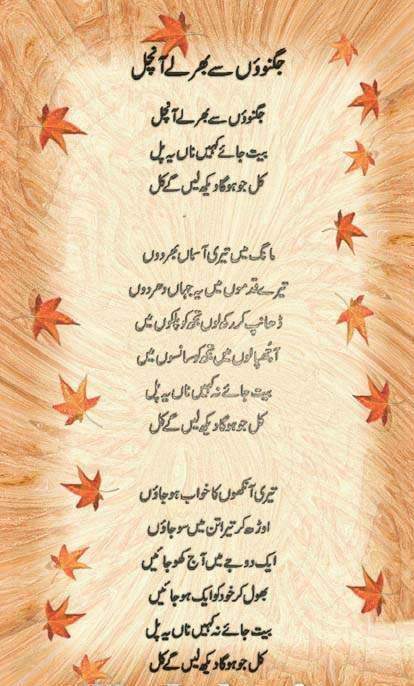 جگنوؤں سے بھر لے آنچل
جگنوؤں سے بھر لے آنچل
بیت جائے کہیں ناں یہ پل
کل جو ہوگا دیکھ لیں گے کل
مانگ میں تیری آسماں بھر دوں
تیرے قدموں میں یہ جہاں دھر دوں
ڈھانپ کر رکھ لوں تجھ کو پلکوں میں
آ چھپا لوں میں تجھ کو سانسوں میں
بیت جائے نہ کہیں ناں یہ پل
کل جو ہوگا دیکھ لیں گے کل
تیری آنکھوں کا خواب ہو جاؤں
اوڑھ کر تیرا تن میں سو جاؤں
ایک دوجے میں آج کھو جائیں
بھول کر خود کو ایک ہو جائیں
بیت جائے نہ کہیں ناں یہ پل
کل جو ہوگا دیکھ لیں گے کل